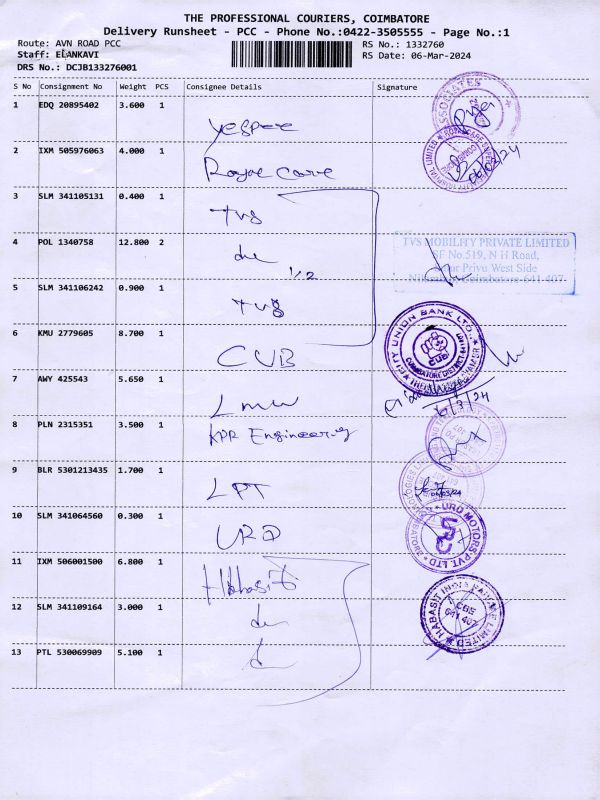 THE PROFESSIONAL COURIERS, COIMBATORE
Delivery Runsheet - PCC - Phone No.:0422-3505555 - Page No.:1
Route: AVN ROAD PCC RS No.: 1332760
Staff: ELANKAVI RS Date: 06-Mar-2024
DRS No.: DCJB133276001
S No Consignment No Weight PCS Consignee Details Signature
1 EDQ 20895402 3.600 1
Yespee
2 IXM 505976063 4.000 1
Royal Care
06/03/24
3 SLM 341105131 0.400 1
TVS
4 POL 1340758 12.800 2
do
1/2
TVS MOBILITY PRIVATE LIMITED
SF No.519, N H Road,
West Side
641 407
5 SLM 341106242 0.900 1
TVS
6 KMU 2779605 8.700 1
CUB
CITY UNION BANK LTD.,
CUB
7 AWY 425543 5.650 1
LMW
6/3/24
8 PLN 2315351 3.500 1
KPR Engineering
9 BLR 5301213435 1.700 1
LPT
06/03/24
10 SLM 341064560 0.300 1
URO
URO MOTORS PVT. LTD
11 IXM 506001500 6.800 1
Habasit
12 SLM 341109164 3.000 1
do
HABASIT INDIA PRIVATE LIMITED
CBE
641 407
13 PTL 530069909 5.100 1
do